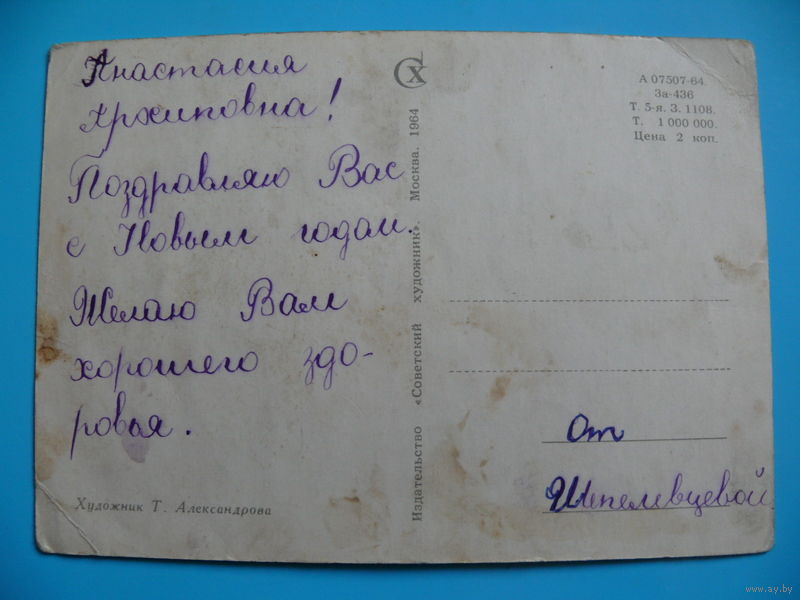 Анастасия
Архиповна!
Поздравляю Вас
с Новым годом.
Желаю Вам
хорошего здо-
ровья.
Художник Т. Александрова
Издательство «Советский художник». Москва. 1964
СХ
А 07507-64.
За-436
Т. 5-я. З. 1108.
Т. 1 000 000.
Цена 2 коп.
От
Шепелевцевой
www.ay.by